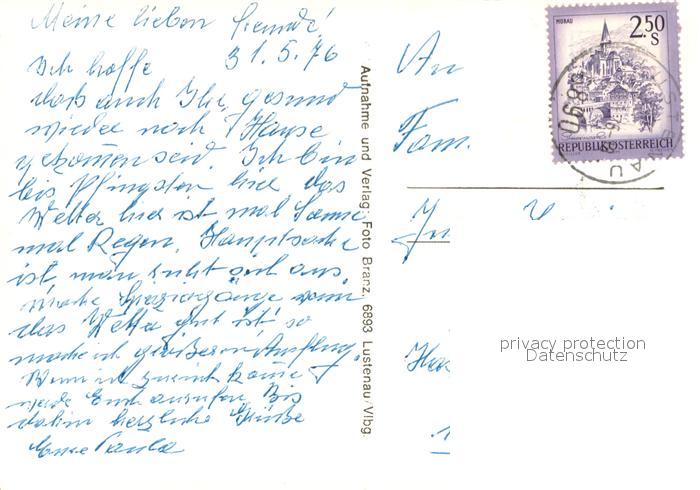 Meine lieben Freunde!
31.5.76
Ich hoffe
daß auch Ihr gesund
wieder nach Hause
gekommen seid. Ich bin
bis Pfingsten hier das
Wetter hier ist mal Sonne
mal Regen, Hauptsache
ist, man ruht sich aus,
mache Spaziergänge wenn
das Wetter gut ist so
mache ich größeren Ausflug.
Wenn ich zurück komme
werde Euch anrufen. Bis
dahin herzliche Grüße
Eure Paula
Aufnahme und Verlag: Foto Branz, 6893 Lustenau/Vlbg.
MURAU
2.50
S
REPUBLIK ÖSTERREICH
6890
An
Fam.
privacy protection
Datenschutz